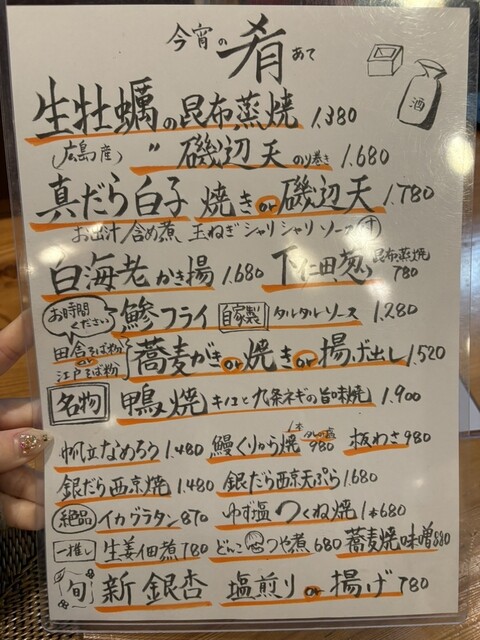 今宵の肴あて
酒
生牡蠣の昆布蒸焼 1.380
(広島産) 〃 磯辺天のり巻き 1.680
真だら白子 焼きor磯辺天 1.780
お出汁/含め煮 玉ねぎシャリシャリソース付
白海老かき揚 1.680 下仁田葱 昆布蒸焼 780
お時間ください 鯵フライ 自家製 タルタルソース 1.280
田舎そば粉or江戸そば粉 蕎麦がきor焼きor揚げ出し 1.520
名物 鴨焼 キノコと九条ネギの旨味焼 1.900
帆立なめろう 1.480 鰻くりから焼 1本 タレor塩 980 板わさ 980
銀だら西京焼 1.480 銀だら西京天ぷら 1.680
絶品 イカグラタン 870 ゆず塩つくね焼 1本680
一推し 生姜佃煮 780 どんこつや煮 680 蕎麦焼味噌 880
旬 新銀杏 塩煎りor揚げ 780